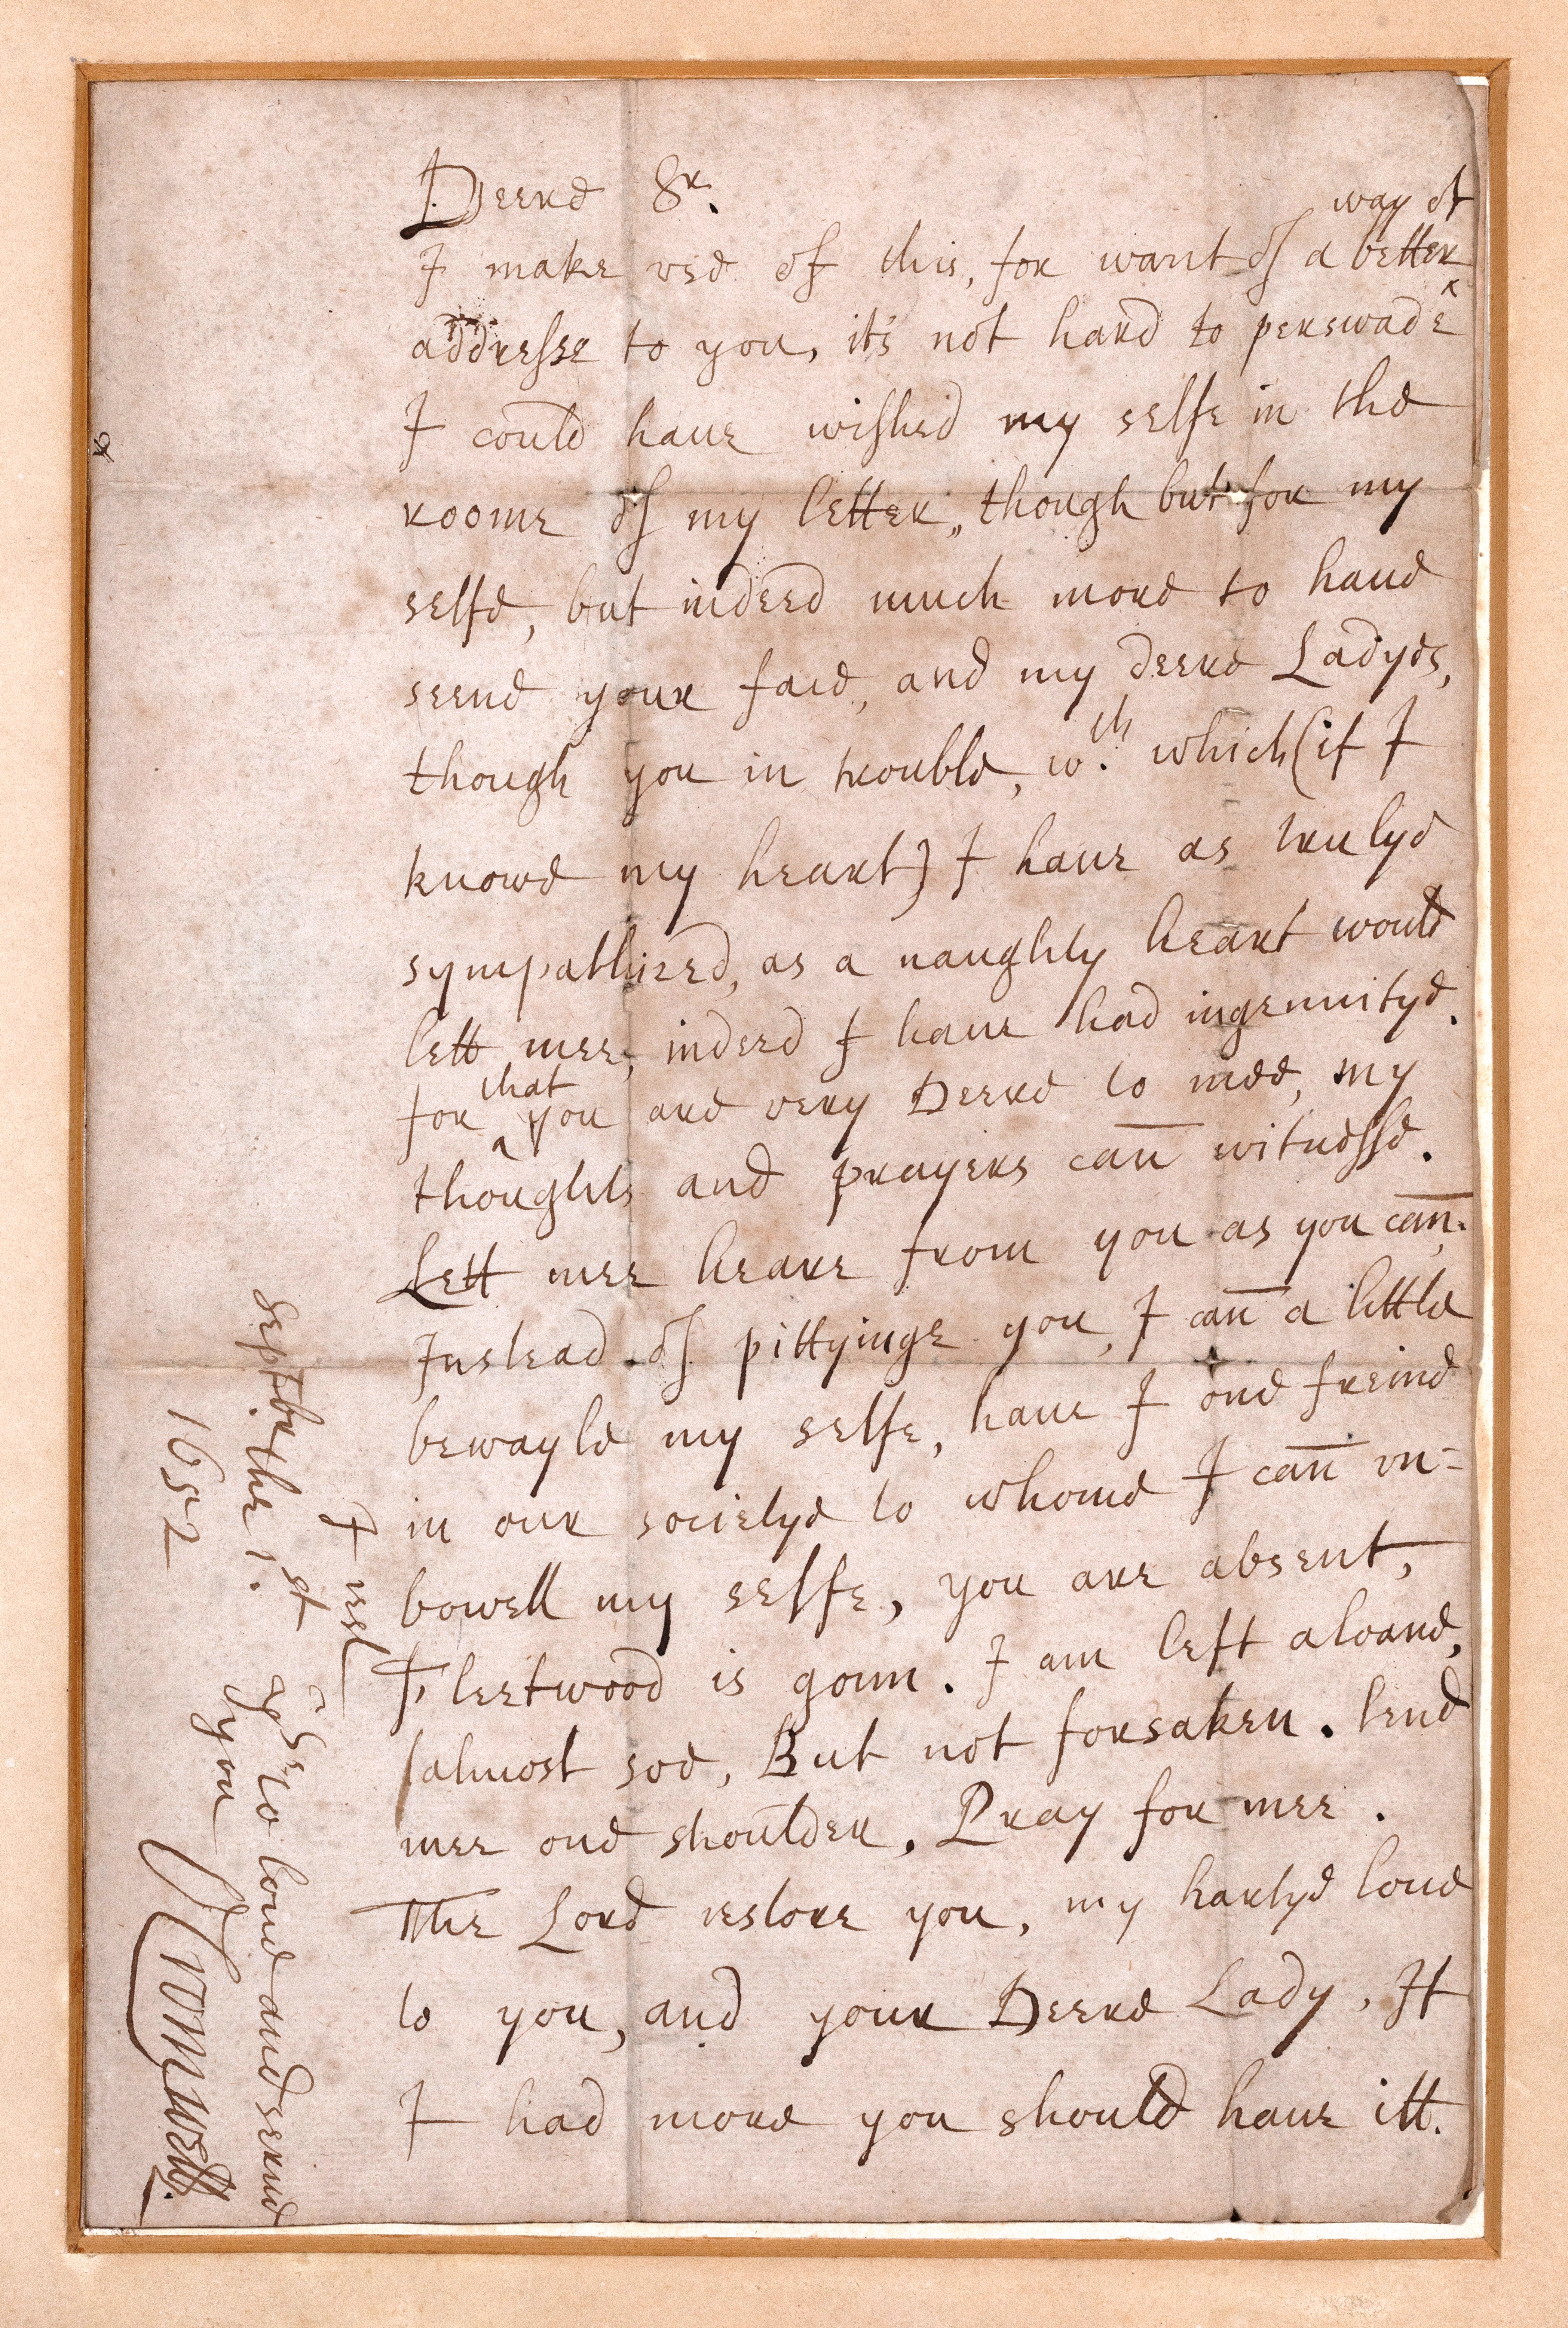 Deere Sr.
I make vse of this, for want of a better way of
addresse to you, it's not hard to perswade
I could haue wished my selfe in the
roome of my letter, though but for my
selfe, but indeed much more to haue
seene your face, and my deere Ladyes,
though you in trouble, wth. which (if I
knowe my heart) I haue as trulye
sympathized, as a naughty heart would
lett mee, indeed I haue had ingenuitye.
for that you are very Deere to mee, my
thoughts and prayers cañ witnesse.
Lett mee heare from you as you cañ.
Instead of pittyinge you, I cañ a little
bewayle my selfe, haue I one freind
in our societye to whome I cañ vn=
bowell my selfe, you are absent,
Fleetwood is gonn. I am left aloane,
(almost soe, But not forsaken. lend
mee one shoulder. Pray for mee.
The Lord restore you, my hartye loue
to you, and your Deere Lady, If
I had more you should haue itt.
I rest
to loue and serue
you
O Cromwell
Septbr the 1st.
1652